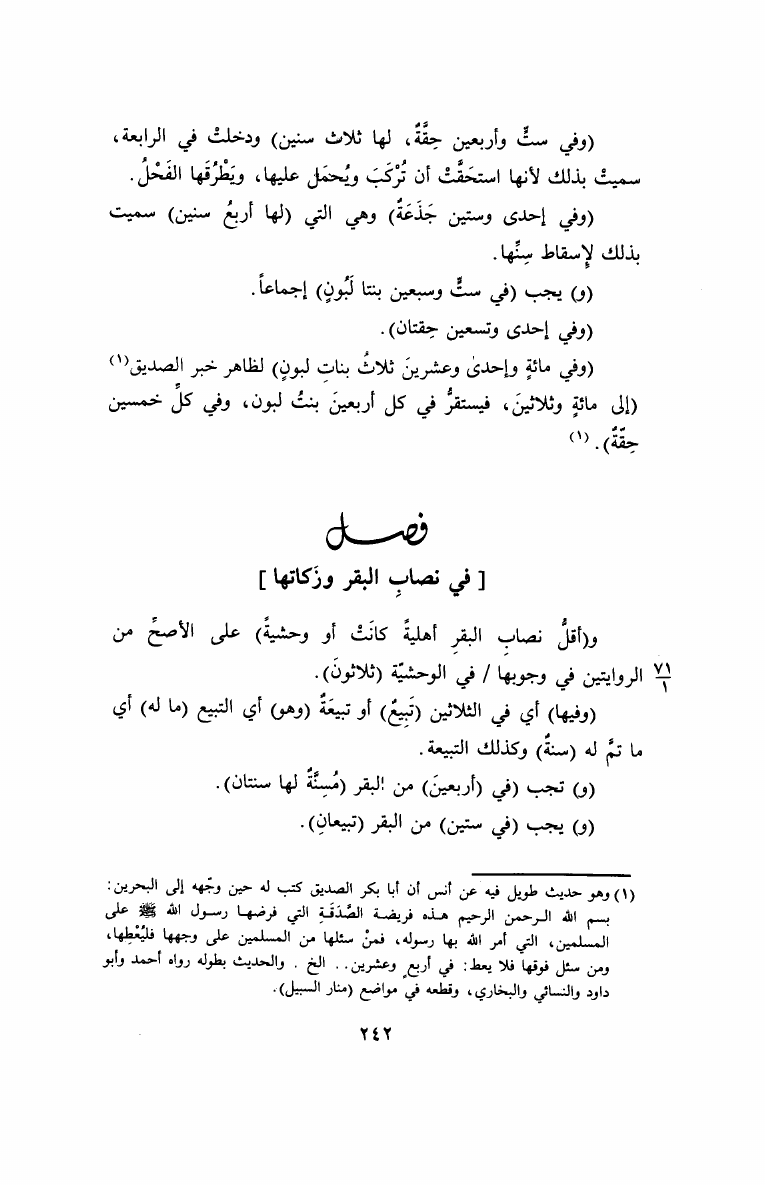 (وفي ستٍّ وأربعين حِقَّةٌ، لها ثلاث سنين) ودخلتْ في الرابعة،
سميتْ بذلك لأنها استحَقَّتْ أن تُرْكَبَ ويُحمَل عليها، ويَطْرُقَها الفَحْلُ.
(وفي إحدى وستين جَذَعَةٌ) وهي التي (لها أربعُ سنين) سميت
بذلك لإسقاط سِنِّها.
(و) يجب (في ستٍّ وسبعين بنتا لَبُونٍ) إجماعاً.
(وفي إحدى وتسعين حِقتان).
(وفي مائةٍ وإحدىٰ وعشرينَ ثلاثُ بناتِ لبونٍ) لظاهر خبر الصديق(١)
(إلى مائةٍ وثلاثينَ، فيستقرُّ في كل أربعينَ بنتُ لبون، وفي كلِّ خمسين
حِقّةٌ).(١)
فصل
[ في نصابِ البقر وزَكاتها ]
و(أقلُّ نصابِ البقرِ أهليةً كانَتْ أو وحشيةً) على الأصحِّ من
الروايتين في وجوبها / في الوحشيّة (ثلاثونَ). ٧١/١
(وفيها) أي في الثلاثين (تَبِيعٌ) أو تبيعَةٌ (وهو) أي التبيع (ما له) أي
ما تمَّ له (سنةٌ) وكذلك التبيعة.
(و) تجب (في (أربعينَ) من البقر (مُسِنَّةٌ لها سنتان).
(و) يجب (في ستين) من البقر (تبيعانِ).
(١) وهو حديث طويل فيه عن أنس أن أبا بكر الصديق كتب له حين وجّهه إلى البحرين:
بسم الله الرحمن الرحيم هذه فريضة الصَّدَقَةِ التي فرضها رسول الله ﷺ على
المسلمين، التي أمر الله بها رسوله، فمنْ سئلها من المسلمين على وجهها فليُعْطِها،
ومن سئل فوقها فلا يعط: في أربعٍ وعشرين.. الخ . والحديث بطوله رواه أحمد وأبو
داود والنسائي والبخاري، وقطعه في مواضع (منار السبيل).
٢٤٢